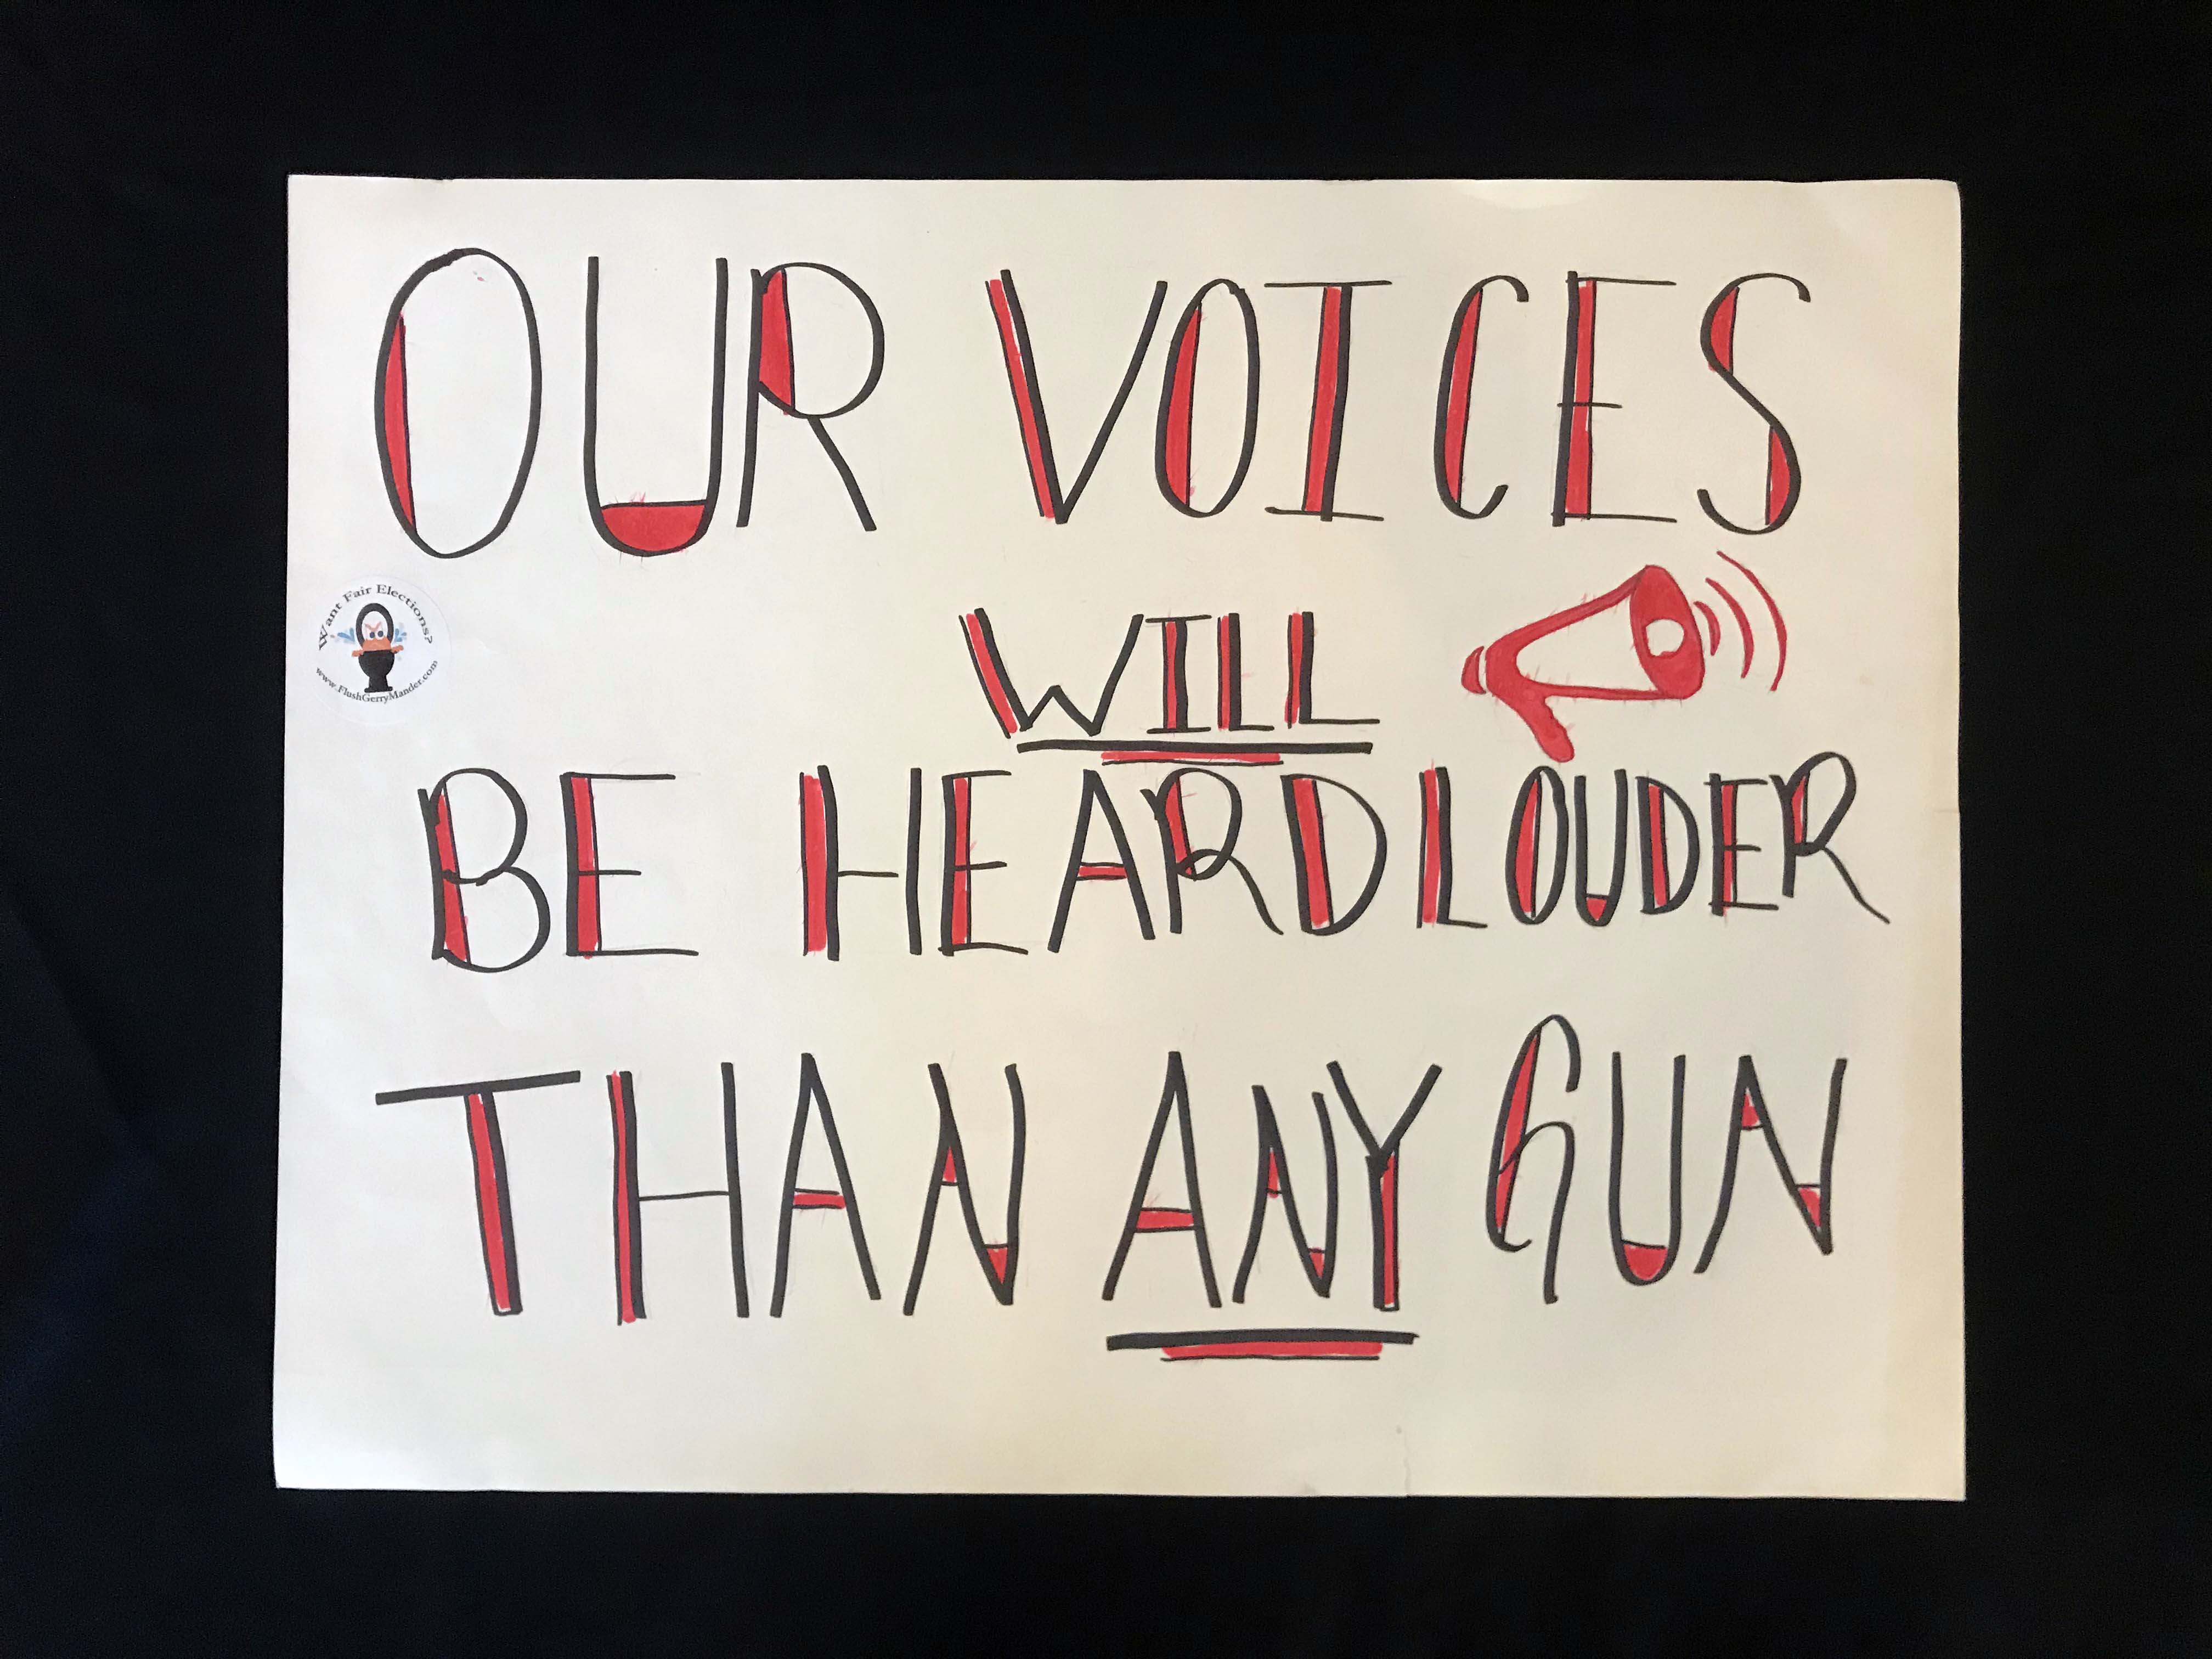 OUR VOICES
Want Fair Elections?
www.FlushGerryMander.com
WILL
BE HEARD LOUDER
THAN ANY GUN